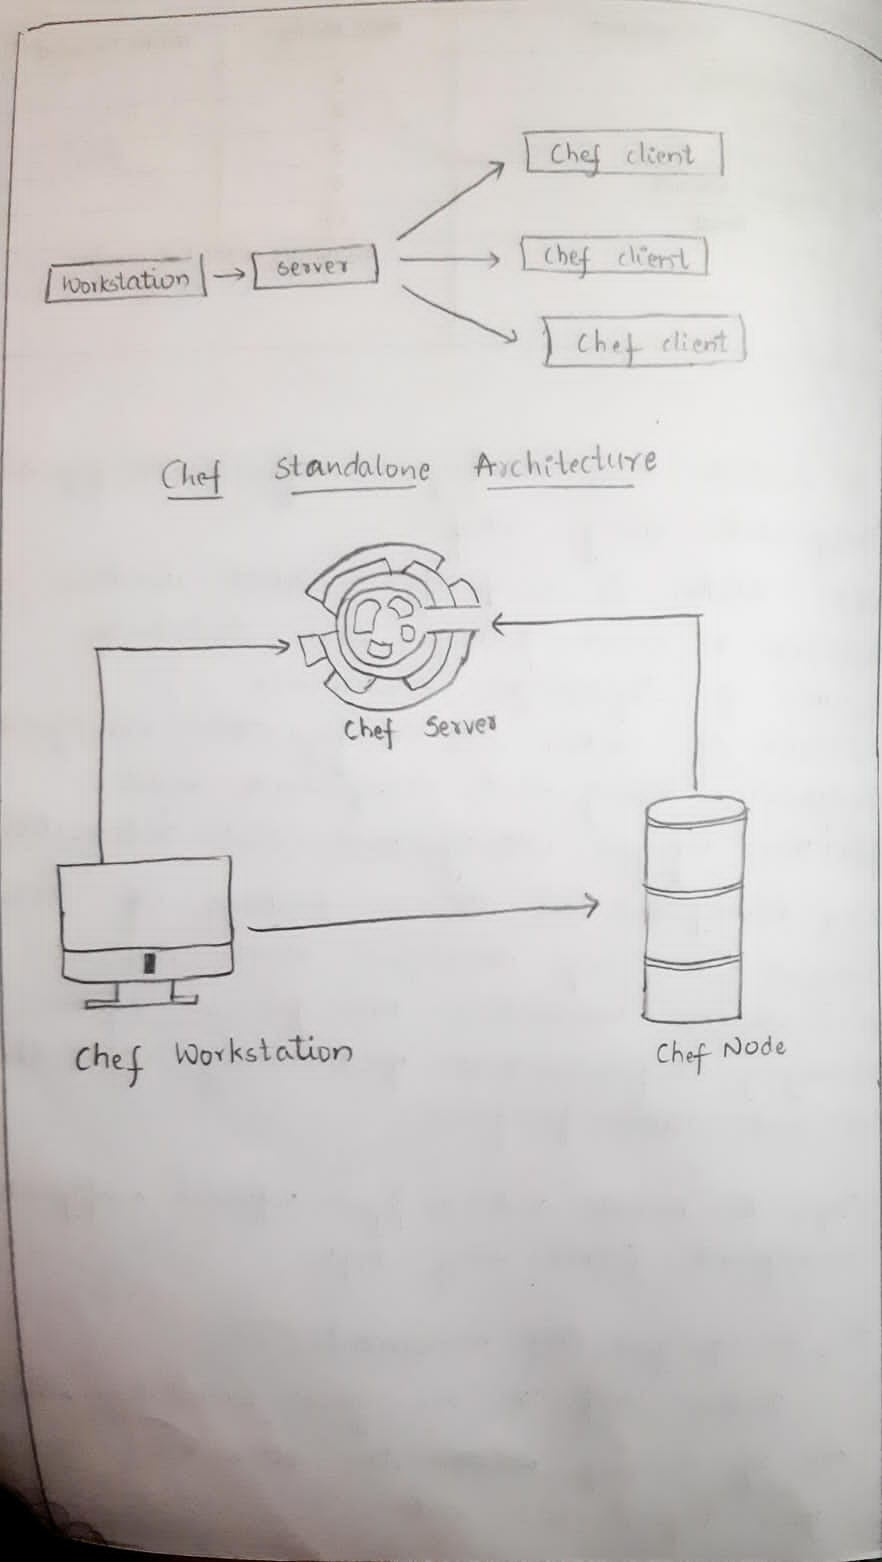 Chef client
Workstation server Chef client
Chef client
Chef Standalone Architecture
Chef Server
Chef Workstation
Chef Node